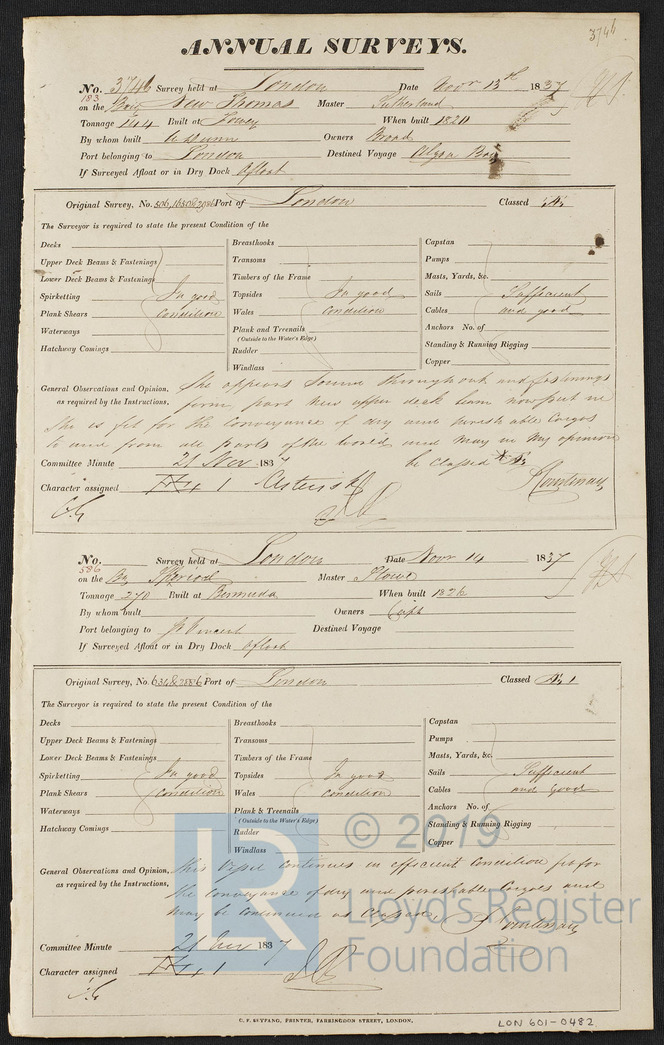 3746
ANNUAL SURVEYS.
No. 3746 Survey held at London Date Novr 13th 1837
183
on the Brig New Thomas Master Sutherland
Tonnage 144 Built at Fowey When built 1820
By whom built Owners Broad
Port belonging to London Destined Voyage Algoa Bay
If Surveyed Afloat or in Dry Dock Afloat
Original Survey, No. Port of London Classed
The Surveyor is required to state the present Condition of the
Decks Breasthooks Capstan
Upper Deck Beams & Fastenings Transoms Pumps
Lower Deck Beams & Fastenings Timbers of the Frame Masts, Yards, &c.
Spirketting In good Topsides In good Sails Sufficient
Plank Shears Condition Wales Condition Cables and good
Waterways Plank and Treenails Anchors No. of
(Outside to the Water's Edge)
Hatchway Comings Rudder Standing & Running Rigging
Windlass Copper
General Observations and Opinion, She appears sound throughout and fastenings
as required by the Instructions, firm, part new upper deck beam now put in
She is fit for the conveyance of dry and perishable Cargos
to and from all parts of the world and may in my opinion
be classed * Æ
Committee Minute 21 Nov 1837
Courtenay
Character assigned 1 Asterisk
No. Survey held at London Date Novr 14 1837
586
on the Bg Master Stowe
Tonnage 270 Built at Bermuda When built 1826
By whom built Owners Capt
Port belonging to St Vincent Destined Voyage
If Surveyed Afloat or in Dry Dock Afloat
Original Survey, No. Port of London Classed Æ 1
The Surveyor is required to state the present Condition of the
Decks Breasthooks Capstan
Upper Deck Beams & Fastenings Transoms Pumps
Lower Deck Beams & Fastenings Timbers of the Frame Masts, Yards, &c.
Spirketting In good Topsides In good Sails Sufficient
Plank Shears Condition Wales Condition Cables and good
Waterways Plank & Treenails Anchors No. of
(Outside to the Water's Edge)
Hatchway Comings Rudder Standing & Running Rigging
Windlass Copper
General Observations and Opinion, This Vessel continues in efficient Condition fit for
as required by the Instructions, the conveyance of dry and perishable Cargoes and
may be continued as classed
Courtenay
Committee Minute 21 1837
Character assigned 1
C. F. SEYFANG, PRINTER, FARRINGDON STREET, LONDON.
LON 601-0482
© 2019
Lloyd's Register
Foundation
LR